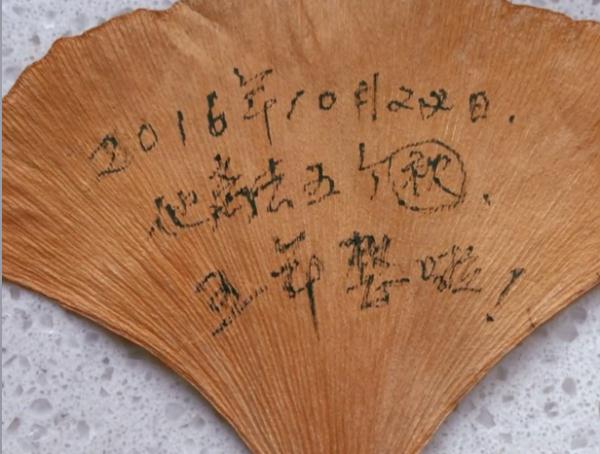 2016年10月22日.
他离去五个秋.
五年整啦!